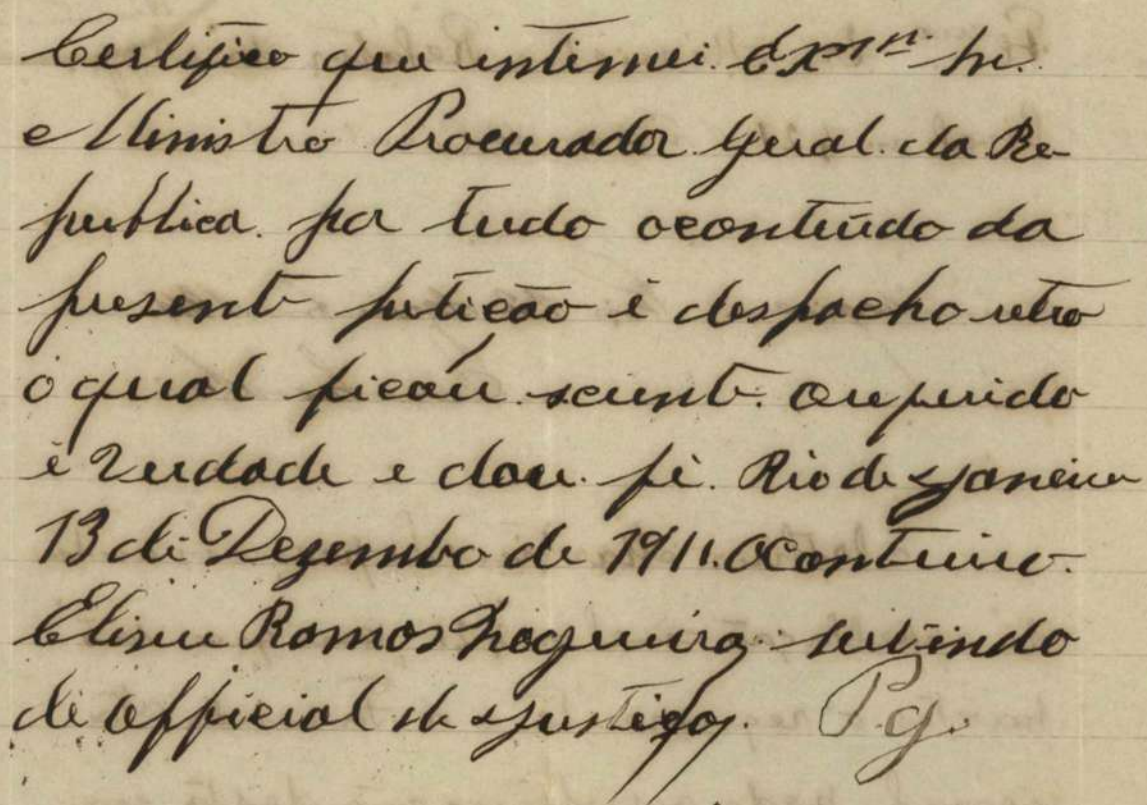 Certifico que intimei Exmº Sr.
Ministro Procurador Geral da Re-
publica por tudo o conteúdo da
present petição e despacho retro
o qual ficou scient. o referido
é verdade e dou fé. Rio de Janeiro
13 de Dezembro de 1911. O Continuo
Eliseu Ramos Nogueira servindo
de official de Justiça. P.g.